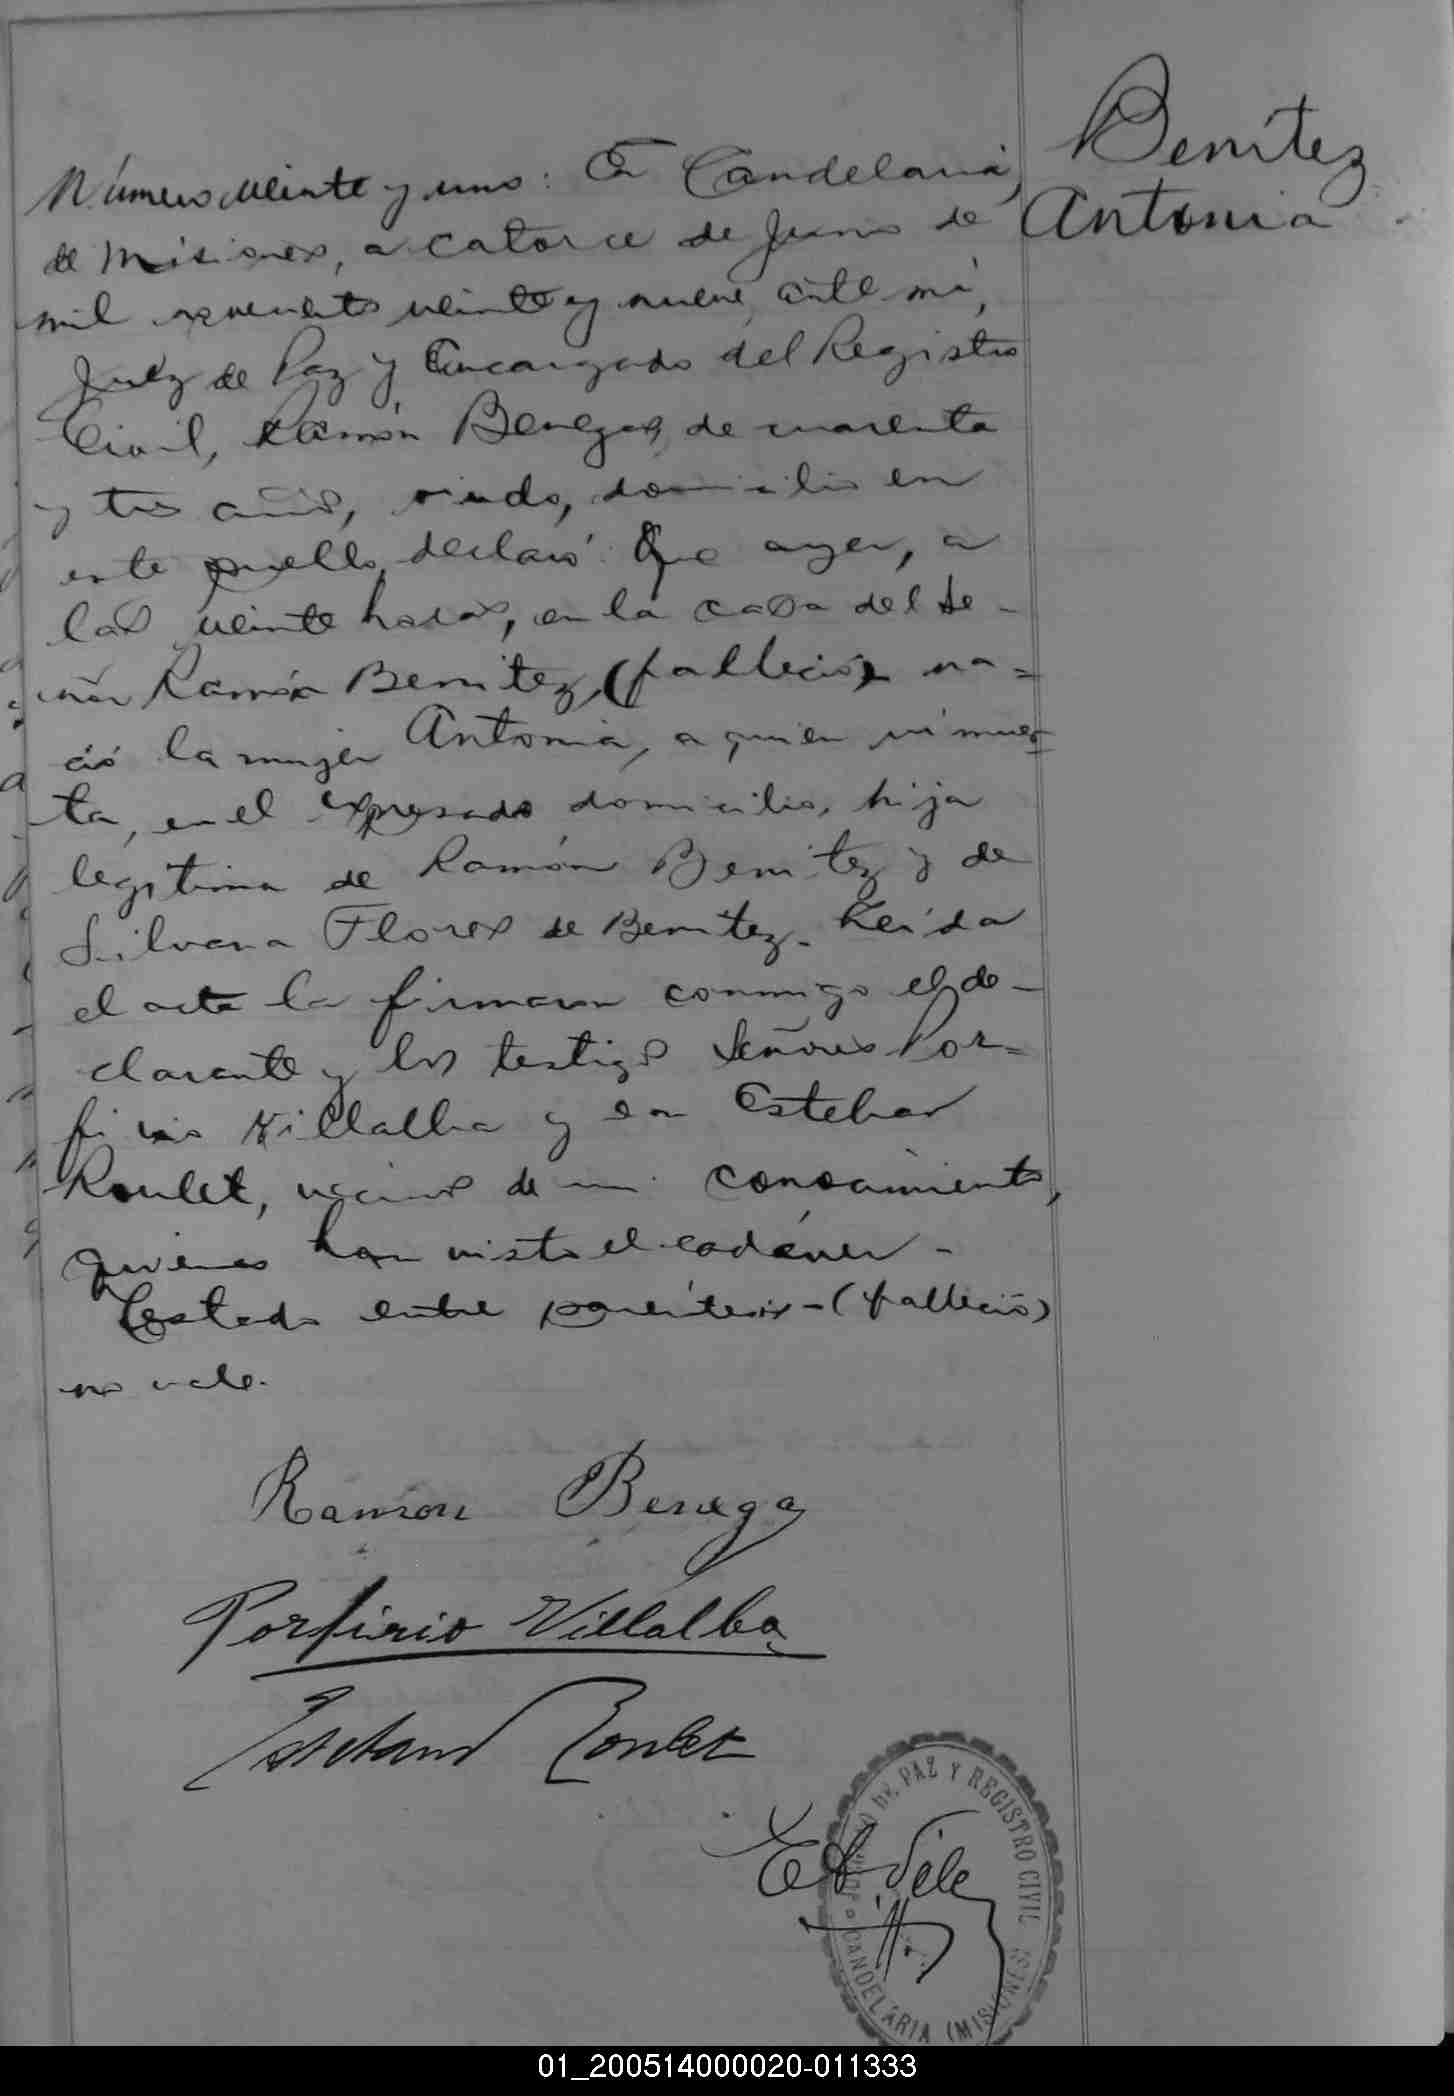 Benítez
Antonia
Número veinte y uno: En Candelaria,
de Misiones, a catorce de Junio de
mil novecientos veinte y nueve, ante mí,
Juez de Paz y Encargado del Registro
Civil, Ramón Benega, de cuarenta
y tres años, viudo, domicilio en
este pueblo, declaró: Que ayer, a
las veinte horas, en la casa del se-
ñor Ramón Benitez, (falleció) na=
ció la mujer Antonia, a quien ví muer-
ta, en el expresado domicilio, hija
legítima de Ramón Benitez y de
Silvana Flores de Benitez. Leída
el acta la firmaron conmigo el de-
clarante y los testigos Señores Por=
firio Villalba y don Esteban
Roulet, vecinos de mi conocimiento,
quienes han visto el cadáver -
Testado entre paréntesis - (falleció)
no vale.
Ramon Benega
Porfirio Villalba
Esteban Roulet
DE PAZ Y REGISTRO CIVIL
CANDELARIA (MISIONES)
01_200514000020-011333